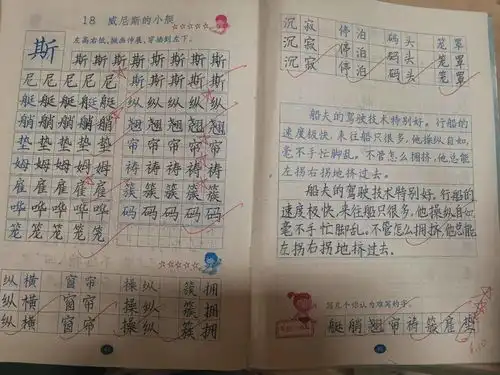 18 威尼斯的小艇
左高右低,撇画伸展,穿插到左下。
斯
斯斯斯斯斯斯
尼尼尼尼尼斯斯斯斯斯
艇艇艇艇艇纵纵纵纵纵
艄艄艄艄艄翘翘翘翘翘
垫垫垫垫垫帘帘帘帘帘
姆姆姆姆姆祷祷祷祷祷
雇雇雇雇雇簇簇簇簇簇
哗哗哗哗哗码码码码码
笼笼笼笼笼
纵横 窗帘 操纵 簇拥
纵横 窗帘 操纵 簇拥
纵横 窗帘 操纵 簇拥
沉寂 停泊 码头 笼罩
沉寂 停泊 码头 笼罩
沉寂 停泊 码头 笼罩
船夫的驾驶技术特别好。行船的
速度极快,来往船只很多,他操纵自如,
毫不手忙脚乱。不管怎么拥挤,他总能
左拐右拐地挤过去。
船夫的驾驶技术特别好。行船的
速度极快,来往船只很多,他操纵自如,
毫不手忙脚乱。不管怎么拥挤,他总能
左拐右拐地挤过去。
写几个你认为难写的字。
艇艄翘帘祷簇雇垫